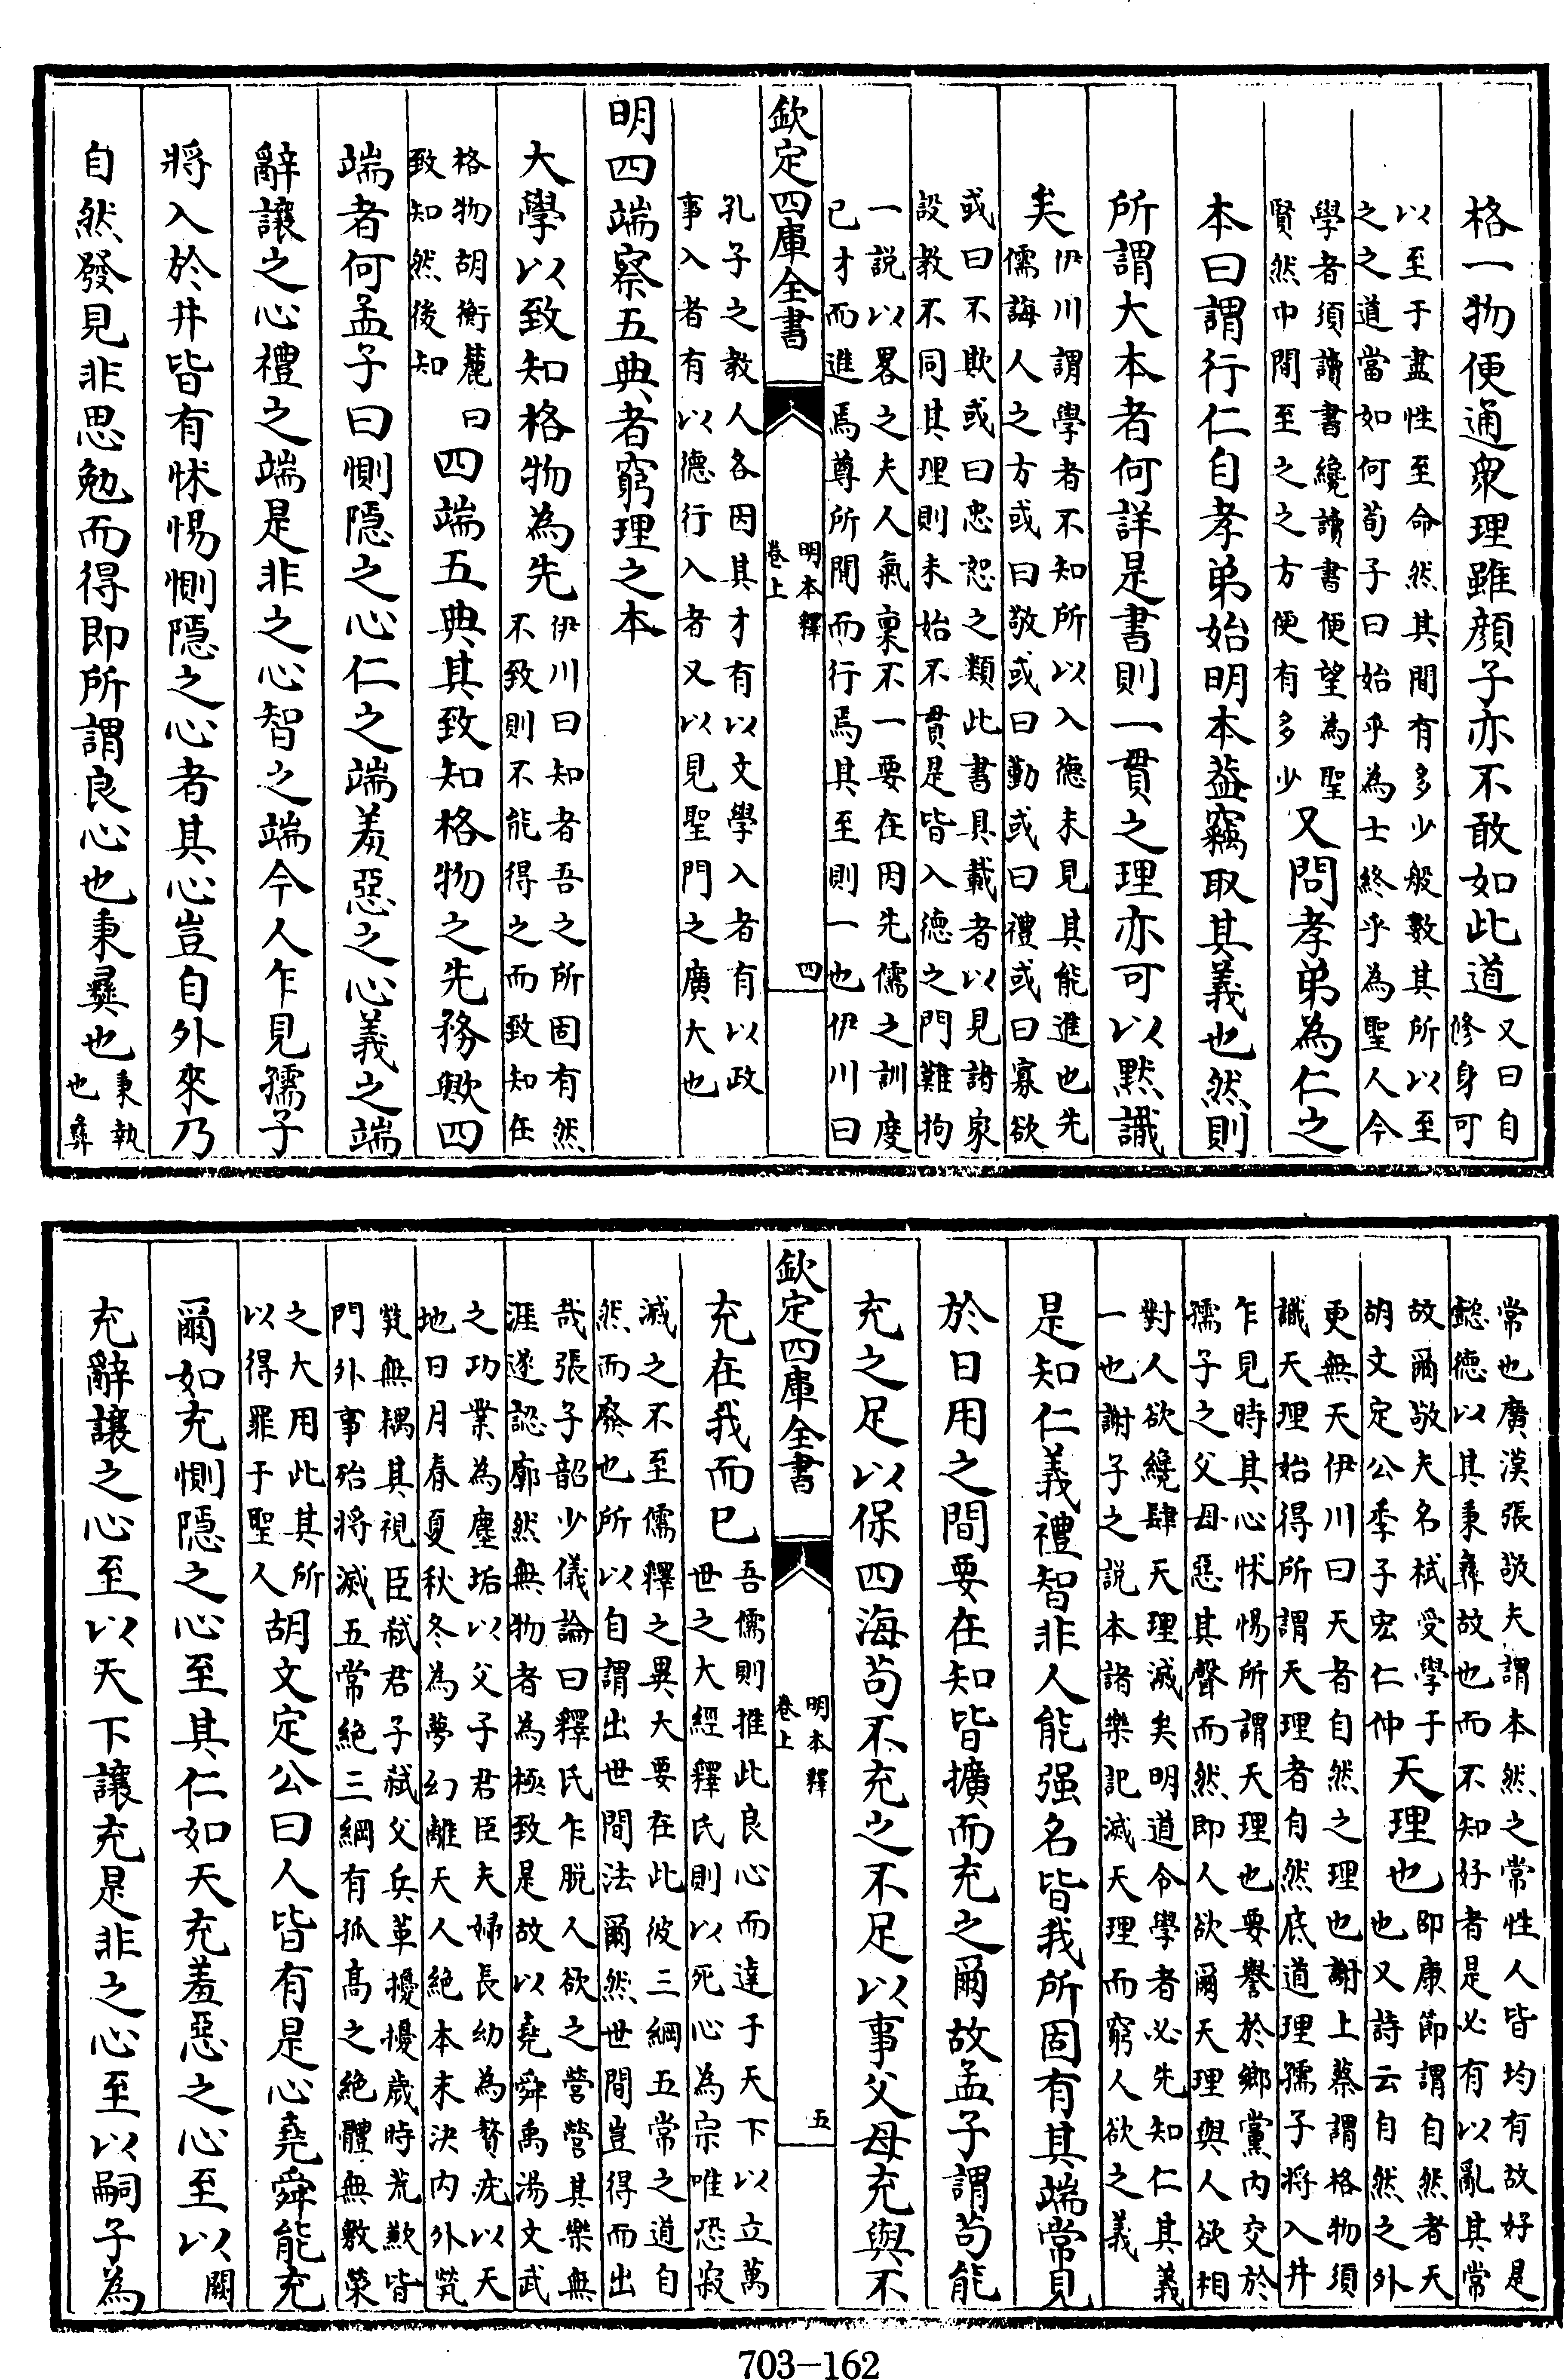 格一物便通衆理雖顔子亦不敢如此道又曰自修身可
以至于盡性至命然其間有多少般數其所以至之之道當如何荀子曰始乎為士終乎為聖人今
學者須讀書纔讀書便望為聖賢然中間至之之方便有多少又問孝弟為仁之
本曰謂行仁自孝弟始明本葢竊取其義也然則
所謂大本者何詳是書則一貫之理亦可以黙識
矣伊川謂學者不知所以入徳未見其能進也先儒誨人之方或曰敬或曰勤或曰禮或曰寡欲
或曰不欺或曰忠恕之類此書具載者以見諸家設教不同其理則未始不貫是皆入徳之門難拘
一說以畧之夫人氣稟不一要在因先儒之訓度已才而進焉尊所聞而行焉其至則一也伊川曰
欽定四庫全書
明本釋
卷上
四
孔子之教人各因其才有以文學入者有以政事入者有以德行入者又以見聖門之廣大也
明四端察五典者窮理之本
大學以致知格物為先伊川曰知者吾之所固有然不致則不能得之而致知在
格物胡衡麓曰致知然後知四端五典其致知格物之先務歟四
端者何孟子曰惻隠之心仁之端羞惡之心義之端
辭讓之心禮之端是非之心智之端今人乍見孺子
將入於井皆有怵惕惻隠之心者其心豈自外來乃
自然發見非思勉而得即所謂良心也秉彛也秉執也彛
常也廣漢張敬夫謂本然之常性人皆均有故好是懿德以其秉彛故也而不知好者是必有以亂其常
故爾敬夫名栻受學于胡文定公季子宏仁仲天理也即康節謂自然者天也又詩云自然之外
更無天伊川曰天者自然之理也謝上蔡謂格物須識天理始得所謂天理者自然底道理孺子將入井
乍見時其心怵惕所謂天理也要譽於鄉黨内交於孺子之父母惡其聲而然即人欲爾天理與人欲相
對人欲纔肆天理滅矣明道令學者必先知仁其義一也謝子之說本諸樂記滅天理而窮人欲之義
是知仁義禮智非人能强名皆我所固有其端常見
於日用之間要在知皆擴而充之爾故孟子謂苟能
充之足以保四海苟不充之不足以事父母充與不
欽定四庫全書
明本釋
卷上
五
充在我而已吾儒則推此良心而達于天下以立萬世之大經釋氏則以死心為宗唯恐寂
滅之不至儒釋之異大要在此彼三綱五常之道自然而廢也所以自謂出世間法爾然世間豈得而出
哉張子韶少儀論曰釋氏乍脱人欲之營營其樂無涯遂認廓然無物者為極致是故以堯舜禹湯文武
之功業為塵垢以父子君臣夫婦長幼為贅疣以天地日月春夏秋冬為夢幻離天人絶本末決内外煢
煢無耦其視臣弑君子弑父兵革擾擾歲時荒歉皆門外事殆將滅五常絶三綱有孤髙之絶體無敷榮
之大用此其所以得罪于聖人胡文定公曰人皆有是心堯舜能充
爾如充惻隠之心至其仁如天充羞惡之心至以闕
充辭讓之心至以天下讓充是非之心至以嗣子為
703-162